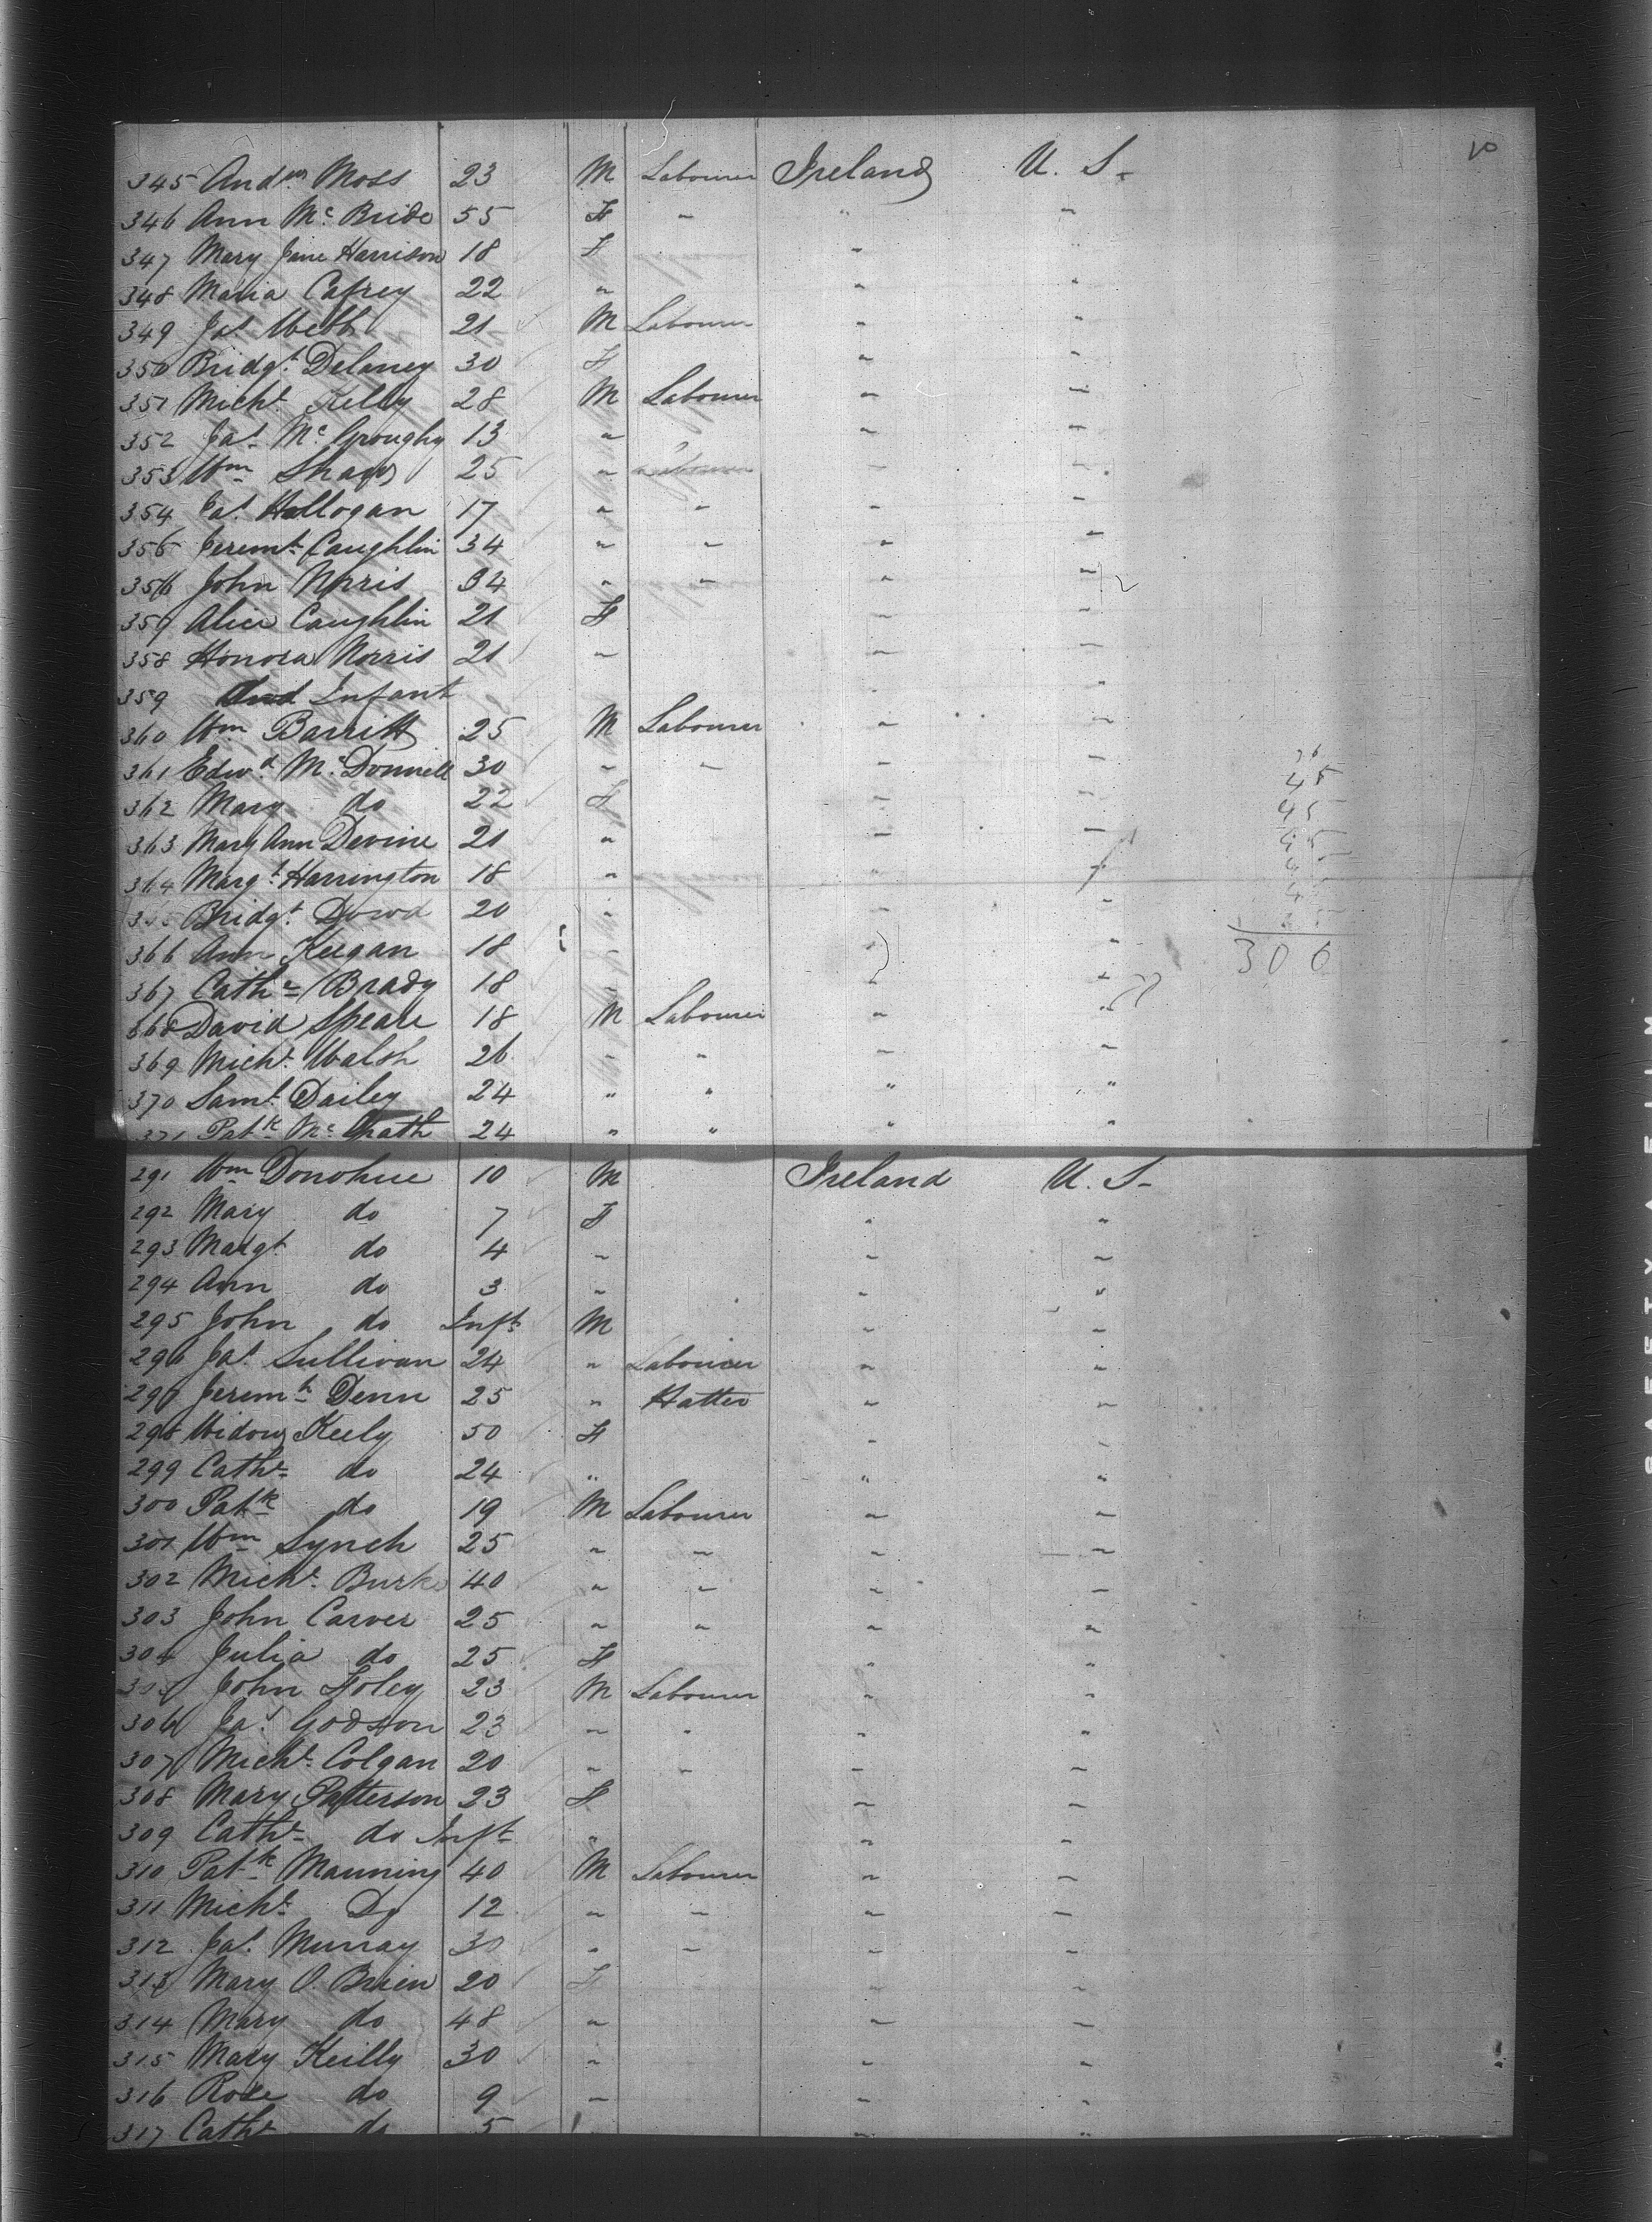 10
345 Andw Moss 23 M Labourer Ireland U. S.
346 Ann Mc Bride 55 F " " "
347 Mary Jane Harrison 18 F " "
348 Maria Cafrey 22 " " "
349 Jas Webb 21 M Labourer " "
350 Bridgt Delaney 30 F " "
351 Michl Kelly 28 M Labourer " "
352 Jas Mc Groughy 13 " " "
353 Wm Shaw 25 " Labourer " "
354 Pat Hallogan 17 " " " "
355 Jeremh Caughlin 34 " " " "
356 John Norris 34 " " " "
357 Alice Caughlin 21 F " "
358 Honora Norris 21 " " "
359 And Infant " "
360 Wm Barritt 25 M Labourer " "
361 Edwd McDonnell 30 " " " "
362 Mary do 22 F " "
363 Mary Ann Devine 21 " " "
364 Margt Harrington 18 " " "
365 Bridgt Dowd 20 " " "
366 Ann Keegan 18 " "
367 Cathe Brady 18 " " "
368 David Speare 18 M Labourer " "
369 Michl Walsh 26 " " " "
370 Saml Dailey 24 " " " "
371 Patk Mc Grath 24 " " " "
45
45
45
306
291 Wm Donohue 10 M Ireland U. S.
292 Mary do 7 F " "
293 Margt do 4 " " "
294 Ann do 3 " " "
295 John do Inft M " "
296 Jas Sullivan 24 " Labourer " "
297 Jeremh Denn 25 " Hatter " "
298 Widow Keely 50 F " "
299 Cathe do 24 " " "
300 Patk do 19 M Labourer " "
301 Wm Lynch 25 " " " "
302 Michl Burke 40 " " " "
303 John Carver 25 " " " "
304 Julia do 25 F " "
305 John Foley 23 M Labourer " "
306 Jas Godson 23 " " " "
307 Michl Colgan 20 " " " "
308 Mary Patterson 23 F " "
309 Cathe do Inft " " "
310 Patk Manning 40 M Labourer " "
311 Michl Do 12 " " " "
312 Jas Murray 30 " " " "
313 Mary O. Brien 20 F " "
314 Mary do 48 " " "
315 Mary Keilly 30 " " "
316 Rose do 9 " " "
317 Cathe do 5 " " "